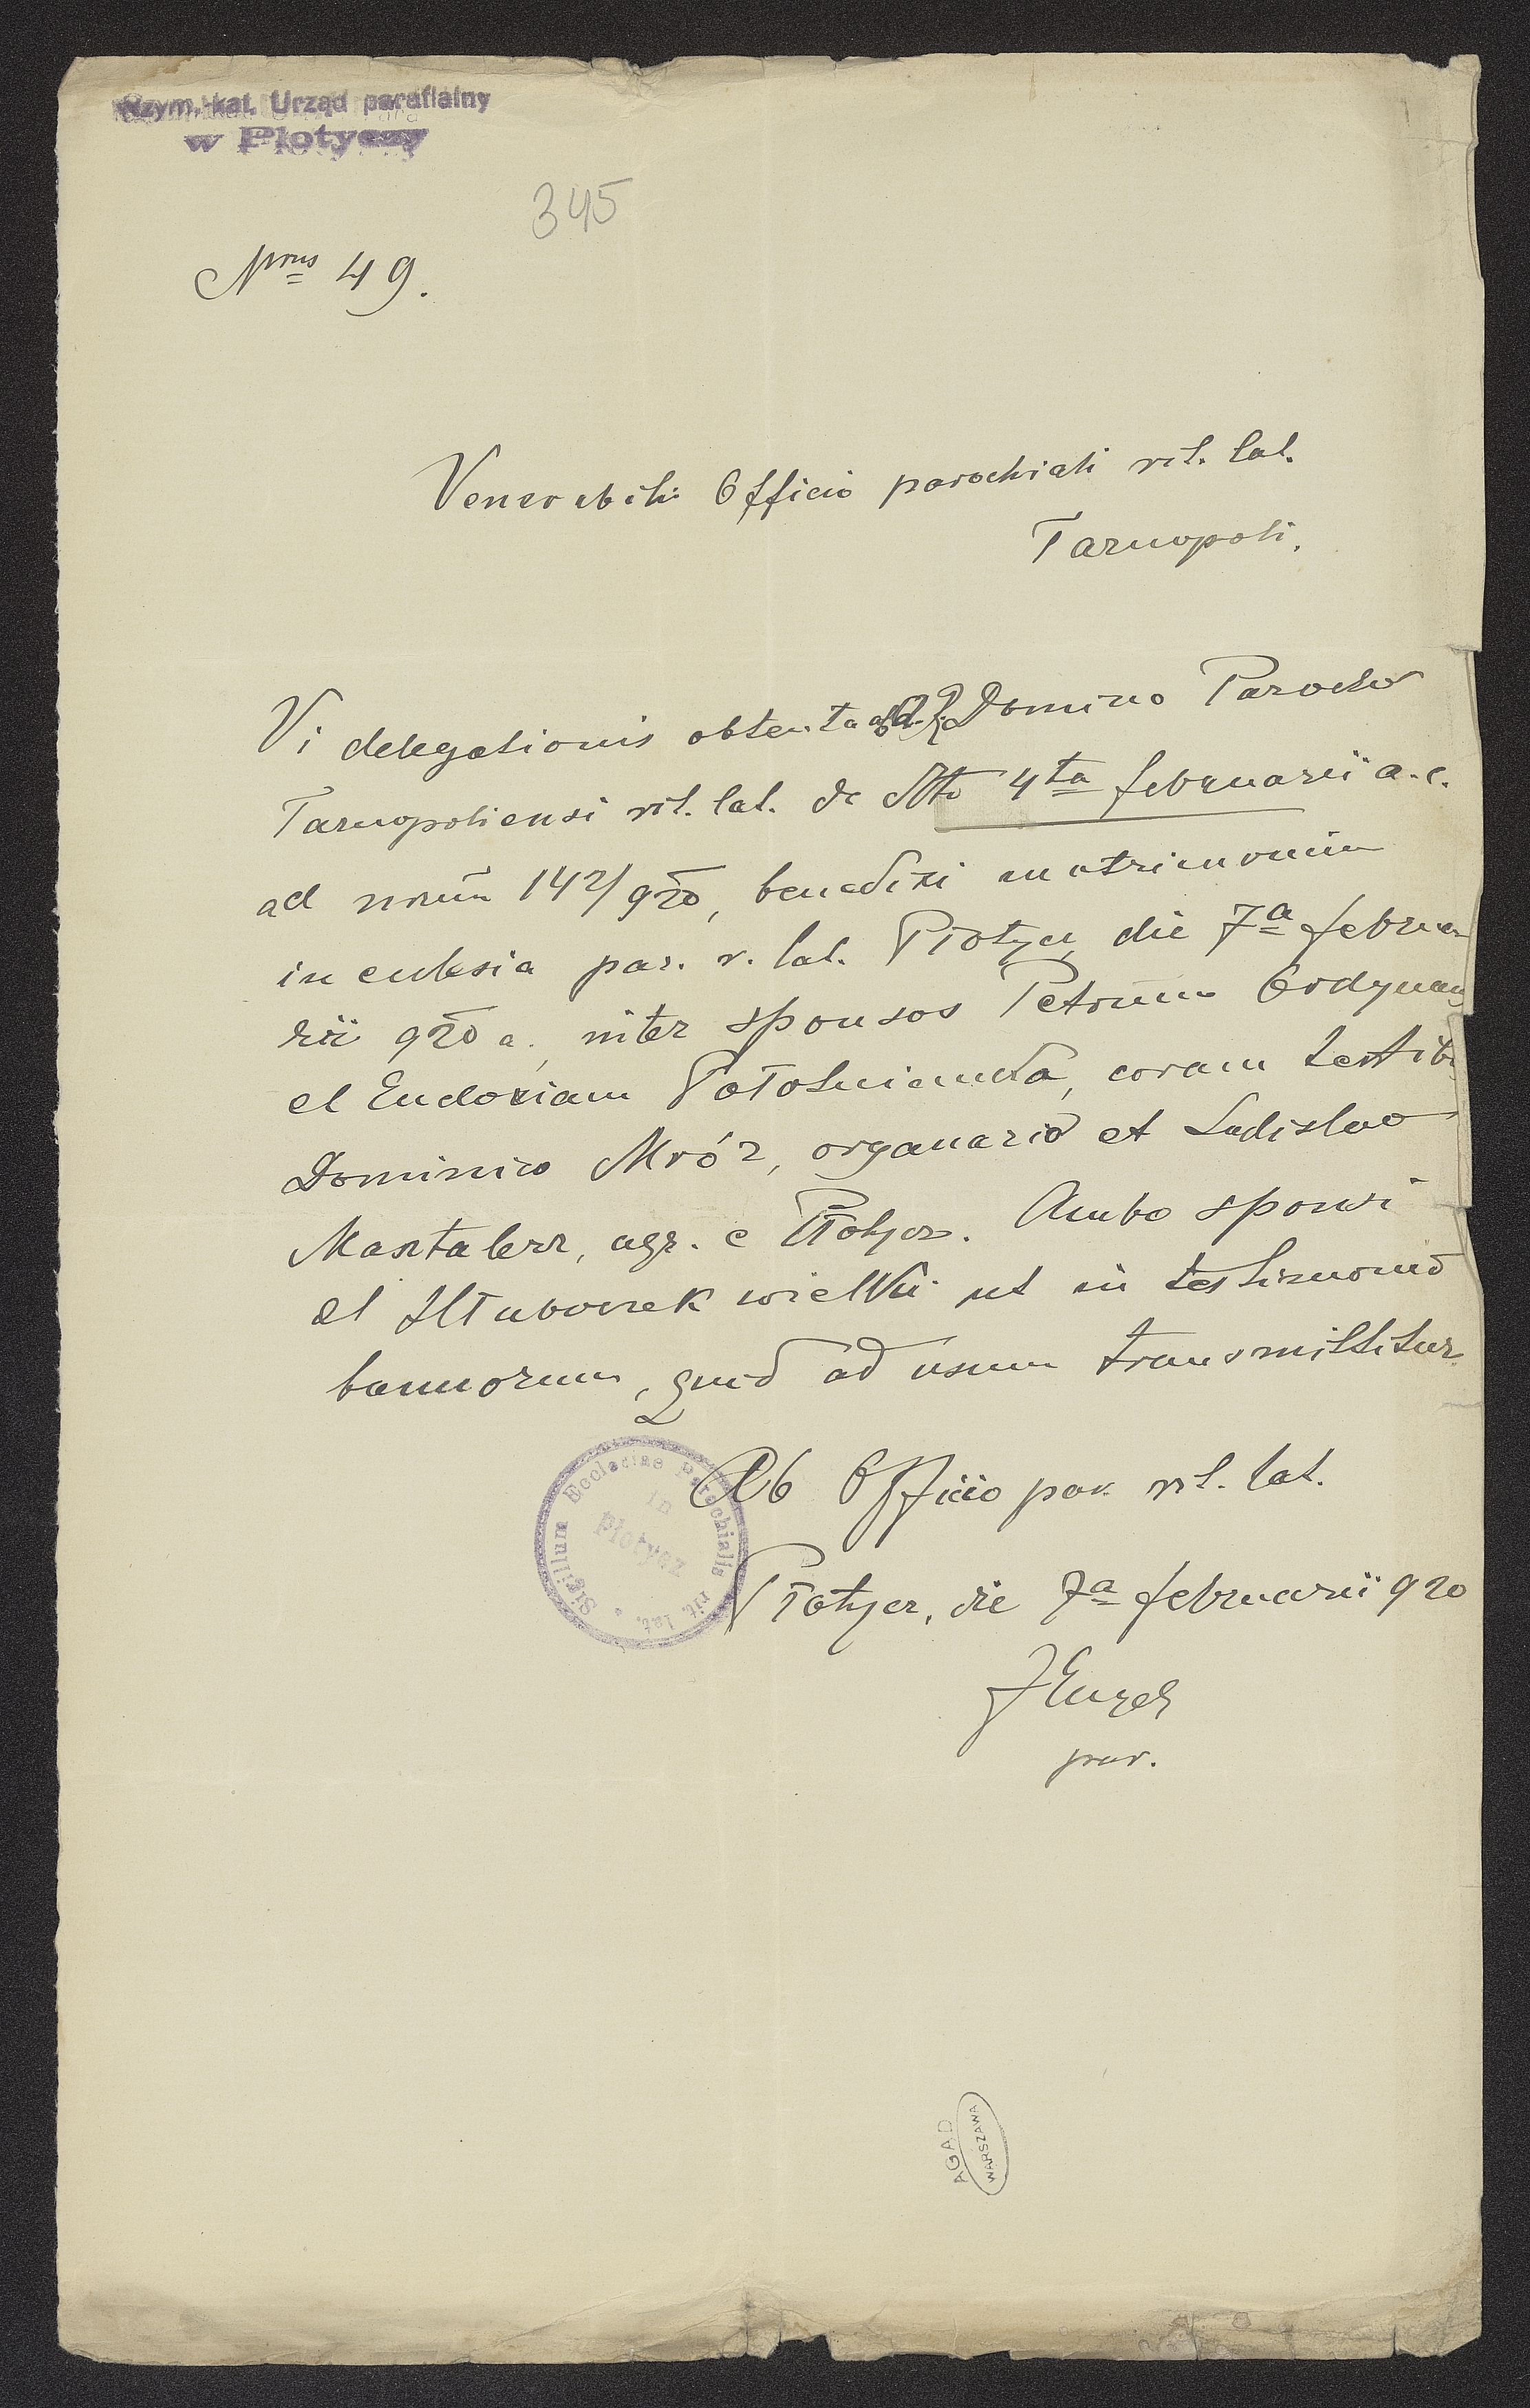 Rzym.-kat. Urząd parafialny
w Płotyczy
345
Nrus 49.
Venerabili Officio parochiali rit. lat.
Tarnopoli.
Vi delegationis obtenta a Domino Parocho
Tarnopoliensi rit. lat. de dtto 4ta februarii a. c.
ad nrum 142/920, benedixi matrimonium
in ecclesia par. r. lat. Płotycz die 7a februa
rii 920 a. inter sponsos Petrum Ordynan
et Eudoxiam Potośnianka, coram testib
Dominico Mróz, organario et Ladislao
Masztalerz, agr. e Płotycz. Ambo sponsi
et Hłuboczek wielki ut in testimonio
bannorum, quod ad usum transmittitur.
Ab Officio par. rit. lat.
Płotycz, die 7a februarii 920
par.
Sigillum Ecclesiae Parochialis rit. lat.
in
Płotycz
AGAD
WARSZAWA